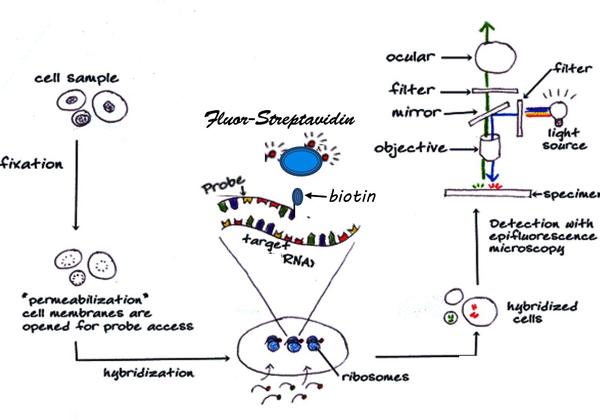 cell sample
fixation
"permeabilization"
cell membranes are
opened for probe access
hybridization
Fluor-Streptavidin
biotin
Probe
target
RNA)
ribosomes
hybridized
cells
Detection with
epifluorescence
microscopy
ocular
filter
mirror
objective
filter
light
source
specimen